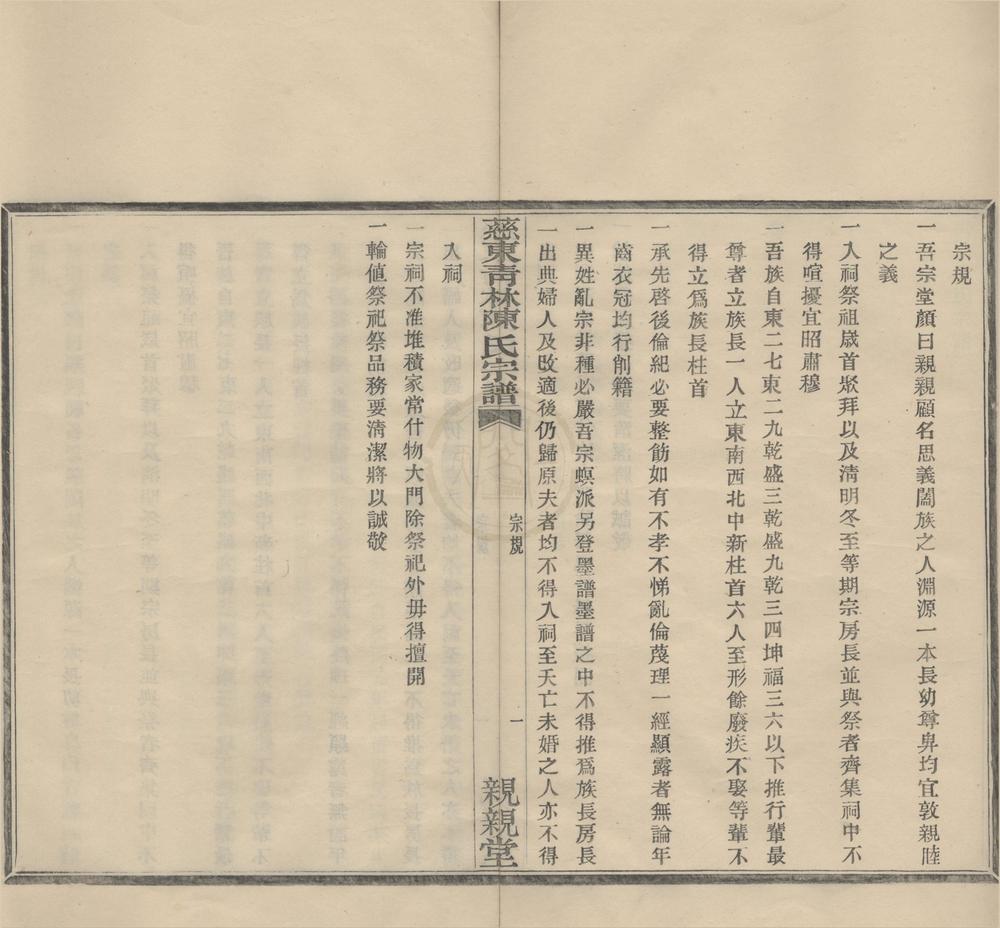 宗規
一吾宗堂顏曰親親顧名思義闔族之人淵源一本長幼尊卑均宜敦親睦
之義
一入祠祭祖歲首聚拜以及淸明冬至等期宗房長並與祭者齊集祠中不
得喧擾宜昭肅穆
一吾族自東二七東二九乾盛三乾盛九乾三四坤福三六以下推行輩最
尊者立族長一人立東南西北中新柱首六人至形餘廢疾不娶等輩不
得立爲族長柱首
一承先啓後倫紀必要整筋如有不孝不悌亂倫蔑理一經顯露者無論年
齒衣冠均行削籍
一異姓亂宗非種必嚴吾宗螟派另登墨譜墨譜之中不得推爲族長房長
一出典婦人及改適後仍歸原夫者均不得入祠至夭亡未婚之人亦不得
慈東靑林陳氏宗譜
宗規
一
親親堂
入祠
一宗祠不准堆積家常什物大門除祭祀外毋得擅開
一輪值祭祀祭品務要淸潔將以誠敬